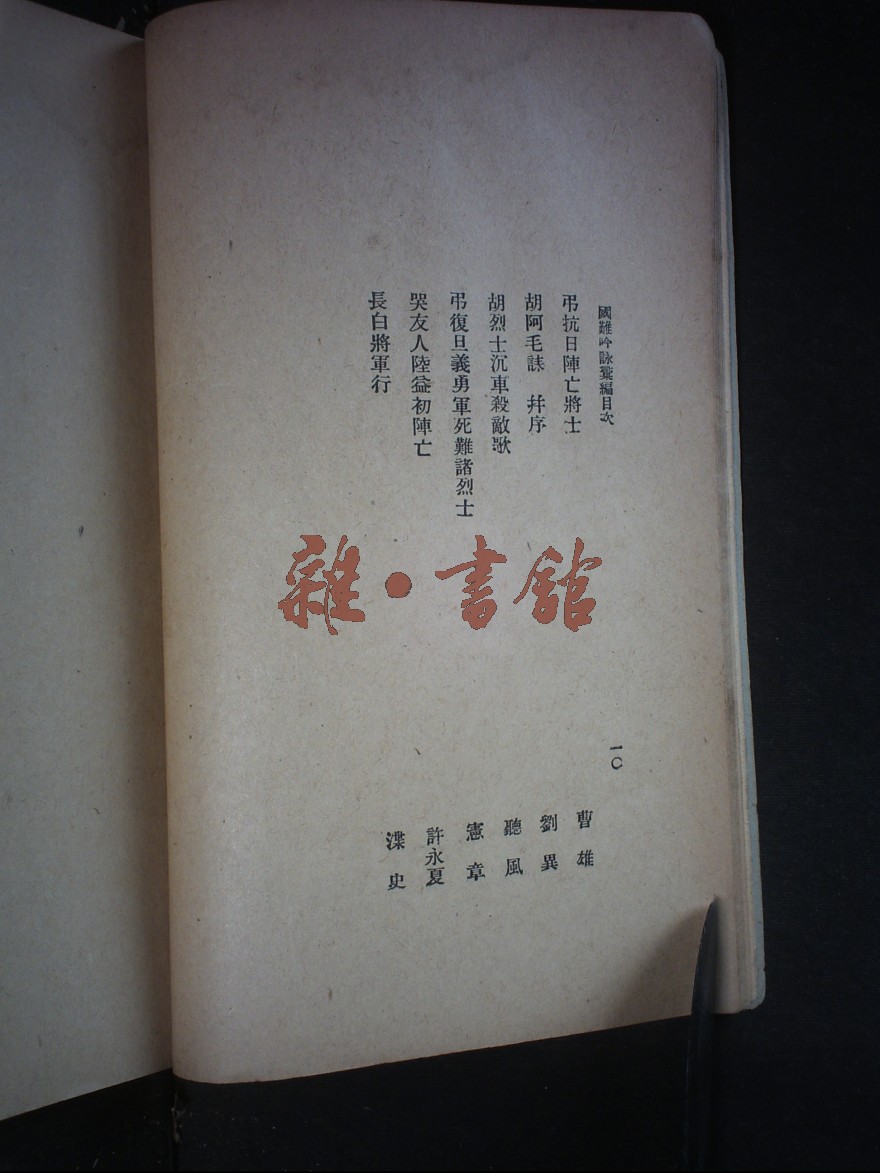 國難吟詠彙編目次
一〇
弔抗日陣亡將士 曹雄
胡阿毛誄 幷序 劉異
胡烈士沉車殺敵歌 聽風
弔復旦義勇軍死難諸烈士 憲章
哭友人陸益初陣亡 許永夏
長白將軍行 渫史
雜·書館